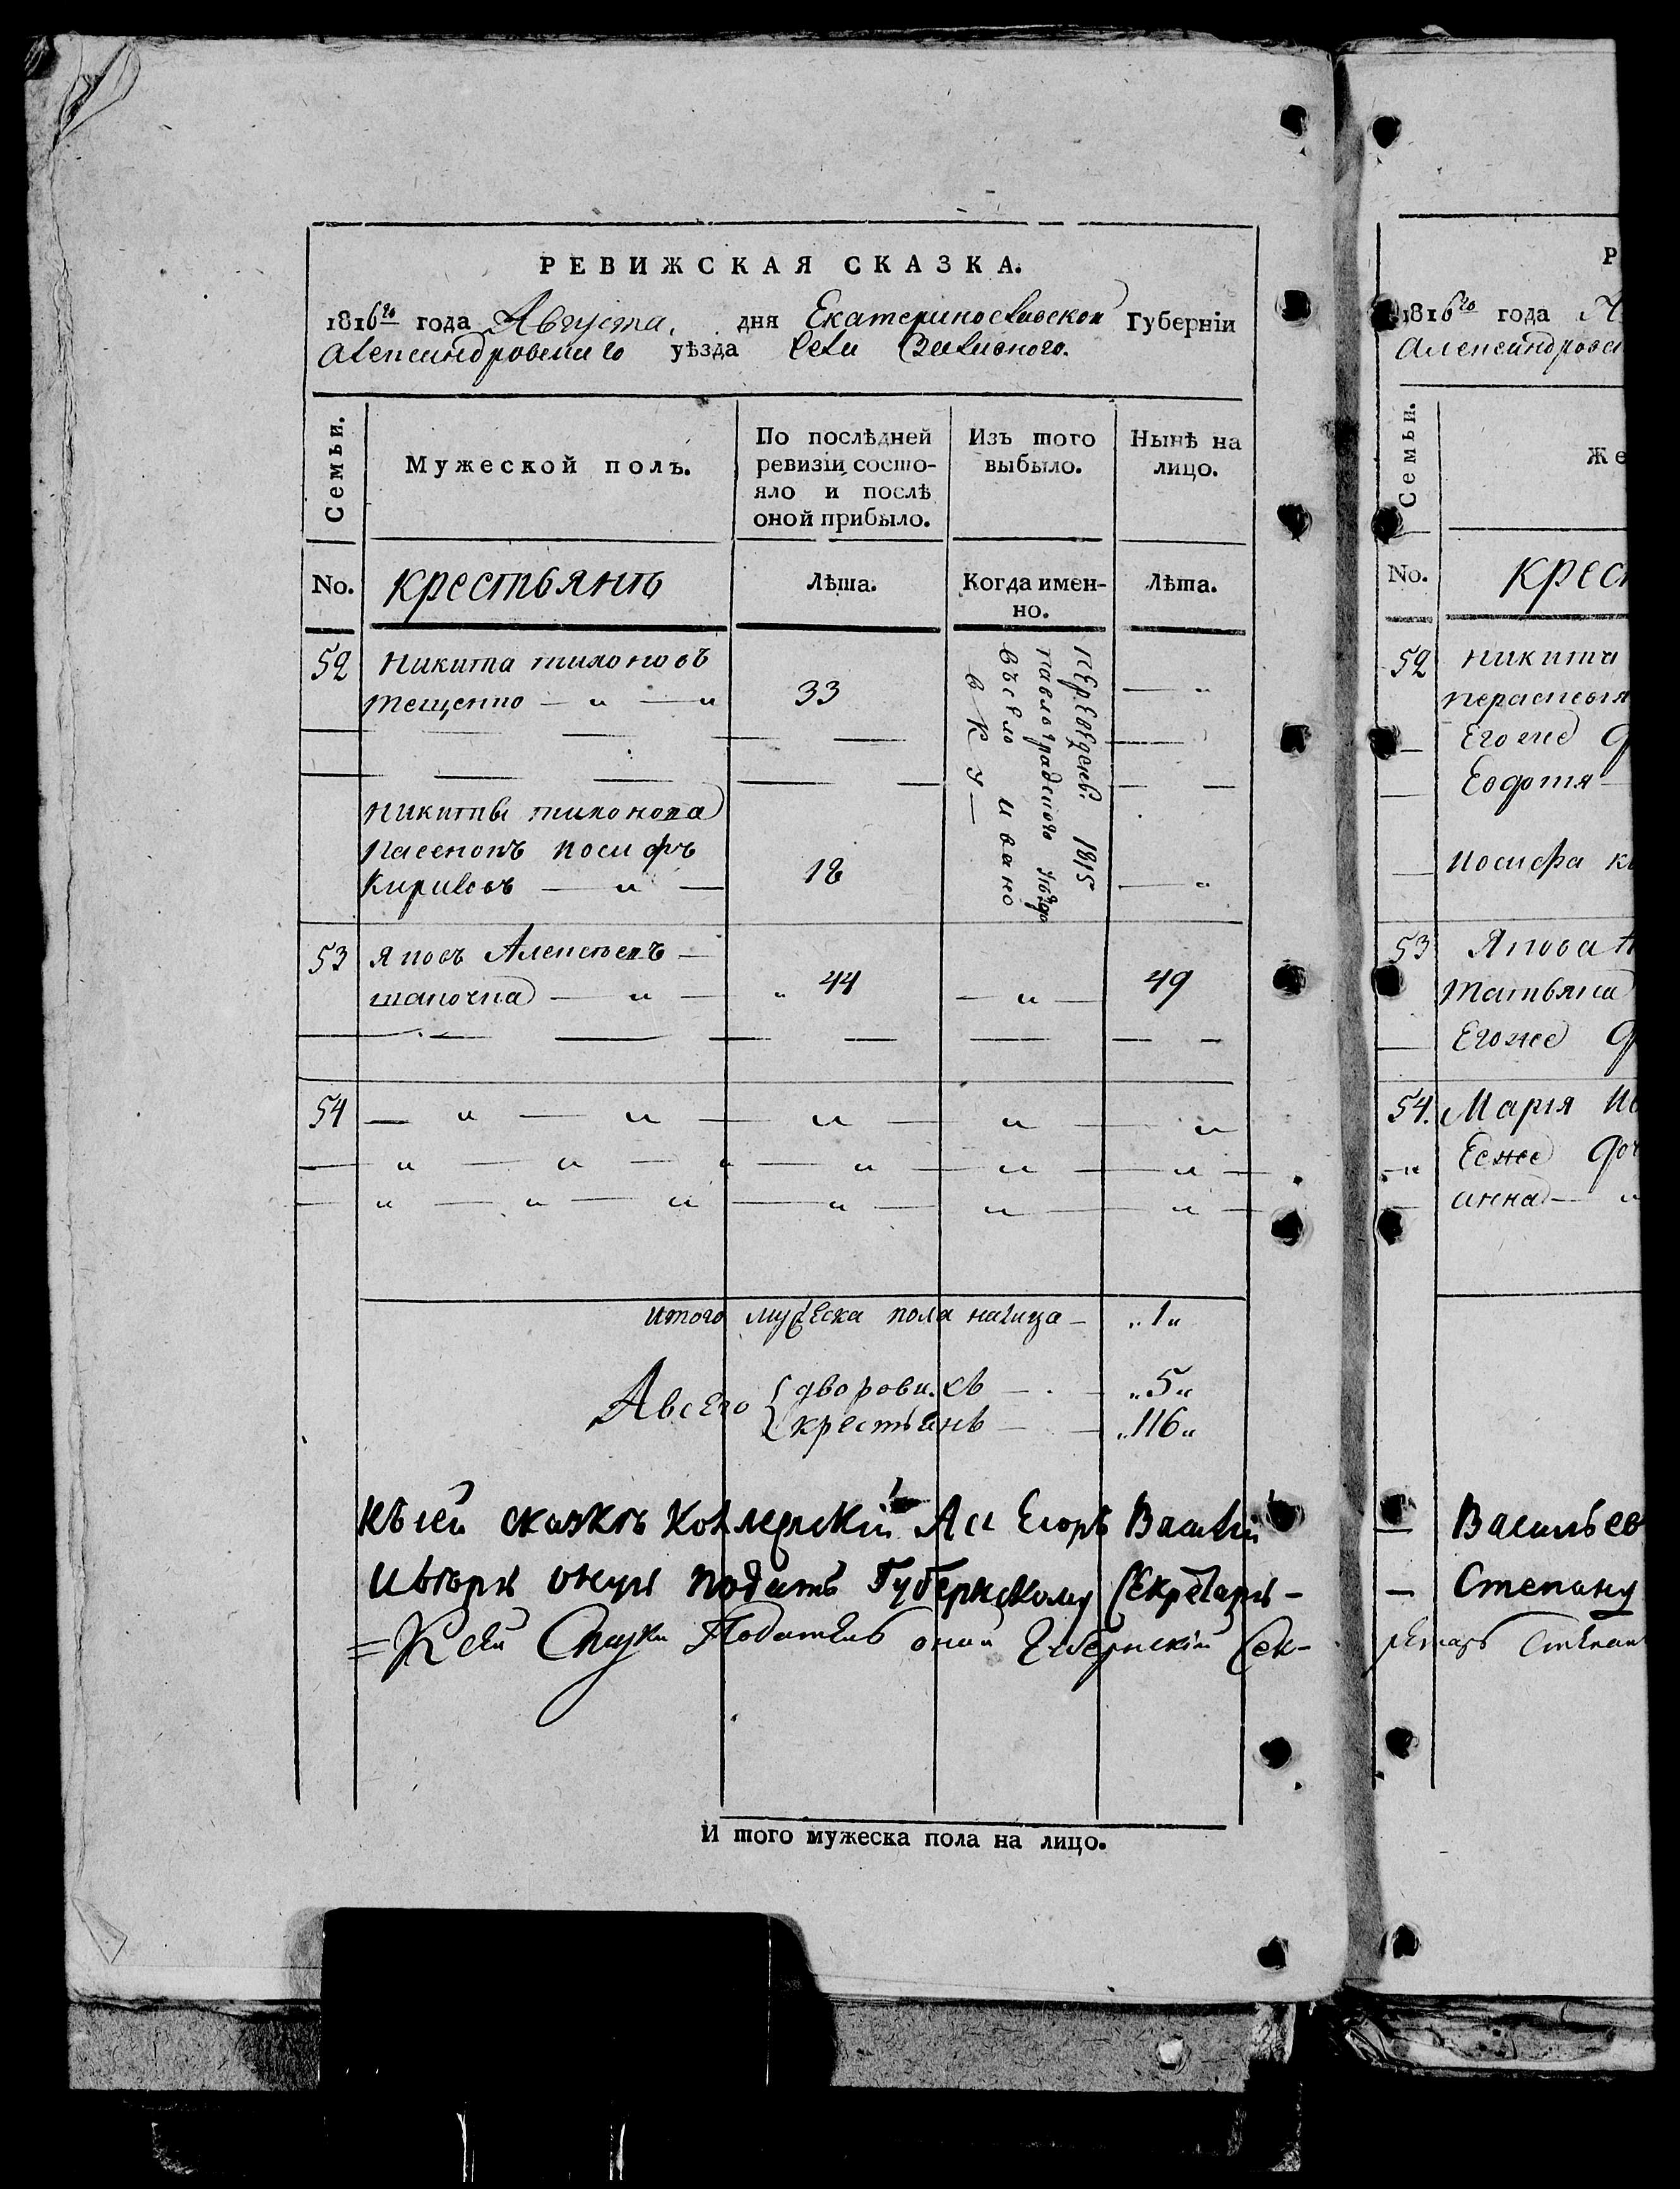 РЕВИЖСКАЯ СКАЗКА.
1816го года Августа, дня Екатеринославской Губерніи
Александровскаго уѣзда села
Семьи.
Мужеской полъ.
По послѣдней ревизіи состо-
яло и послѣ
оной прибыло.
Изъ того
выбыло.
Нынѣ на
лицо.
No.
крестьянъ
Лѣта.
Когда имен-
но.
Лѣта.
52
Никита тихоновъ
тещенко — „ — „
33
переведенъ: 1815
павлоградского уѣзда
въ село Ивано
вку —
— „
Никиты тихонова
пасенокъ иосифъ
Кириловъ — „ —
18
— „
53
яковъ Алексѣевъ —
шапочка — „ —
„ 44
— „ —
49
54
итого мужеска пола налица — „1„
Авсего
дворовыхъ — . — „5„
крестьянъ — — „116„
Къ сей сказкѣ Колежскій Егоръ
подать Губернскому Секретарю —
= К сей Скаски Податель оной Губернскій Сек-
И того мужеска пола на лицо.
Р
1816го года А
Александровс
Семьи.
Же
No.
крест
52
никиты
Его же д
Иосифа к
53
Якова А
татьяна
Его же д
54.
Марія Ив
Ее же доч
анна — „
— Васильев
— Степану
ретарь Степан